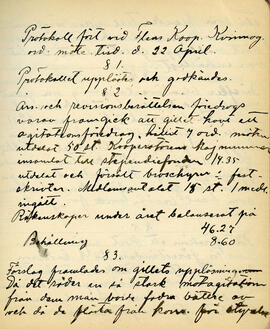 Protokoll fört vid Flens Koop. Kvinnog
ord. möte tisd. d. 22 April.
§ 1.
Protokollet upplästes och godkändes.
§ 2
Års och revisionsberättelsen föredrogs
varav framgick att gillet havt ett
agitationsföredrag, hållit 7 ord. möten
utdelat 50 st. Kooperatörens kag nummer
insamlat till stipendiefonden 14.35
utdelat och försålt broschyrer fest-
skrifter. Medlemsantalet 18 st. 1 medl.
ingått.
Räkenskaper under året balanserat på
46.27
Behållning 8.60
§ 3.
Förslag framlades om gillets upplösning
Då det råder en så stark motagitation
från dem man borde fodra bättre av
och då de flesta från kons. för